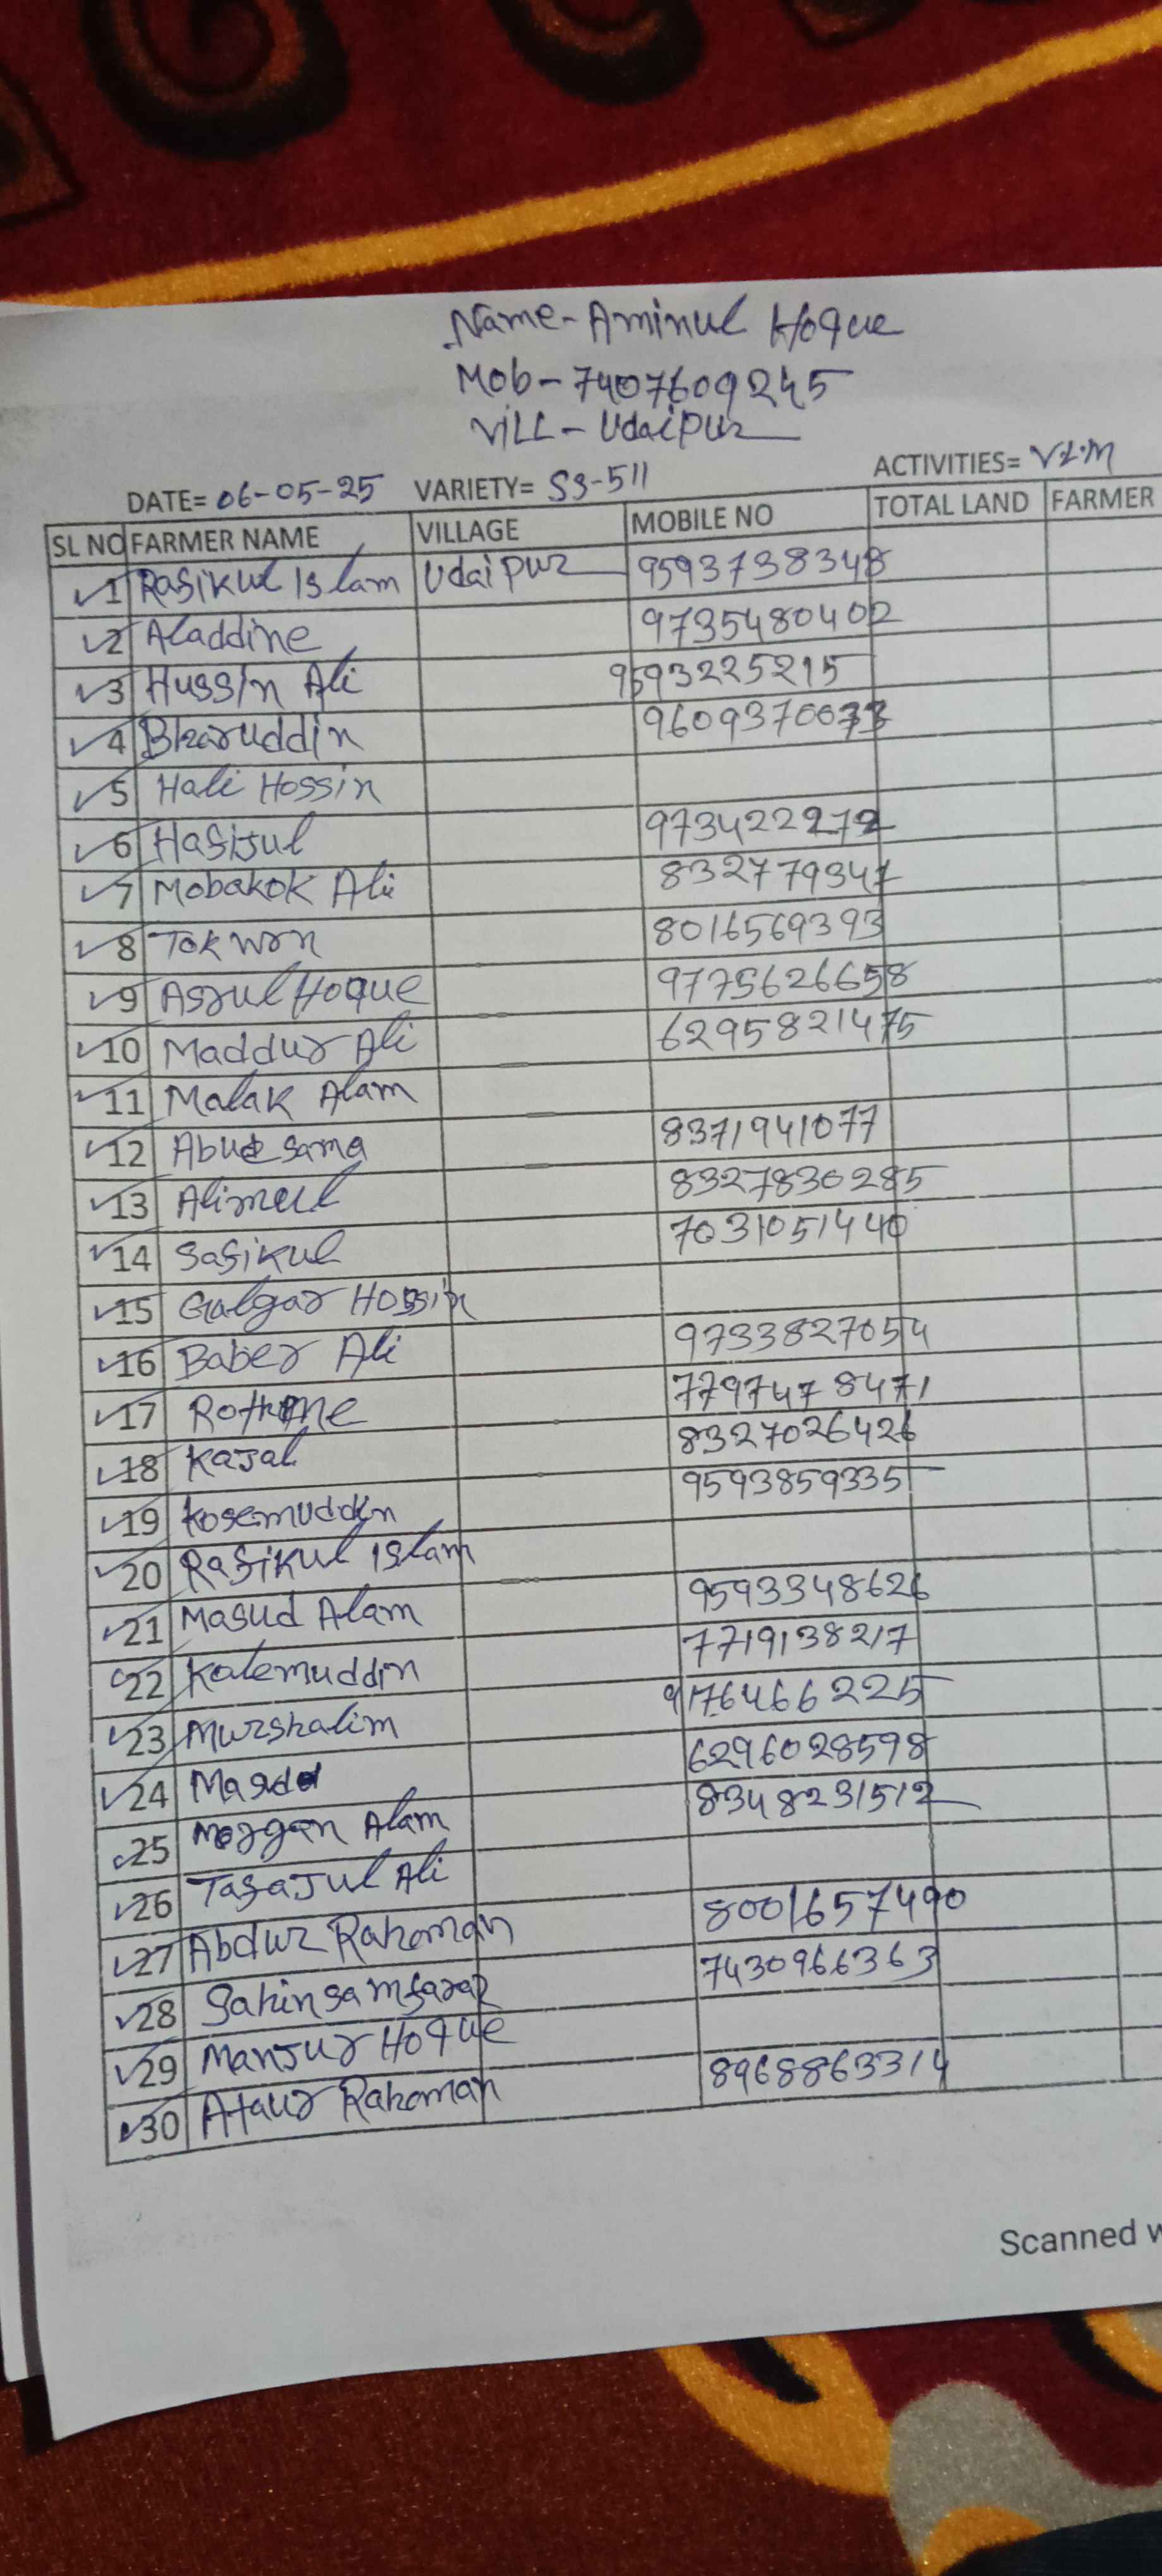 Name- Aminul Hoque
Mob- 7407609245
Vill- Udaipur
ACTIVITIES= V.L.M
DATE= 06-05-25 VARIETY= S3-511
SL NO FARMER NAME VILLAGE MOBILE NO TOTAL LAND FARMER
1 Rafikul Islam Udaipur 9593738348
2 Aladdine 9735480402
3 Hussin Ali 9593225215
4 Bharuddin
5 Hali Hossin
6 Hafijul 973422272
7 Mobakok Ali 8327779347
8 Tokwon 8016569393
9 Asrul Hoque 9775626658
10 Maddur Ali 6295821475
11 Malak Alam
12 Abue sama 8371941077
13 Alimul 8327830285
14 Safikul 7031051440
15 Galgar Hossin
16 Baber Ali 9733827054
17 7797478471
18 Kajal 8327026426
19 Kosemuddin 9593859335
20 Rafikul Islam
21 Masud Alam 9593348626
22 Kalemuddin 7719138217
23 Murshalim 9176466225
24 6296028598
25 Morgan Alam 8348231512
26 Tafajul Ali
27 Abdur Rahoman 8001657490
28 7430966363
29 Manjur Hoque
30 Ataur Rahoman 8968863314
Scanned w